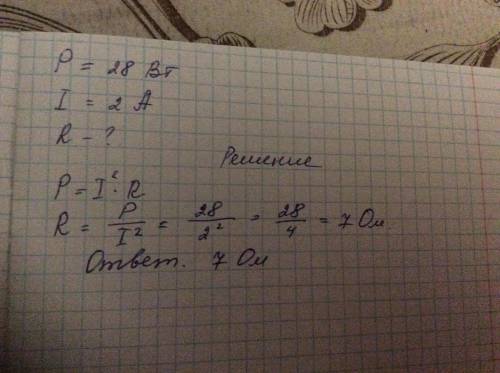 P = 28 Вт
I = 2 А
R - ?
Решение
P = I²· R
R = P/I² = 28/2² = 28/4 = 7 Ом
Ответ. 7 Ом